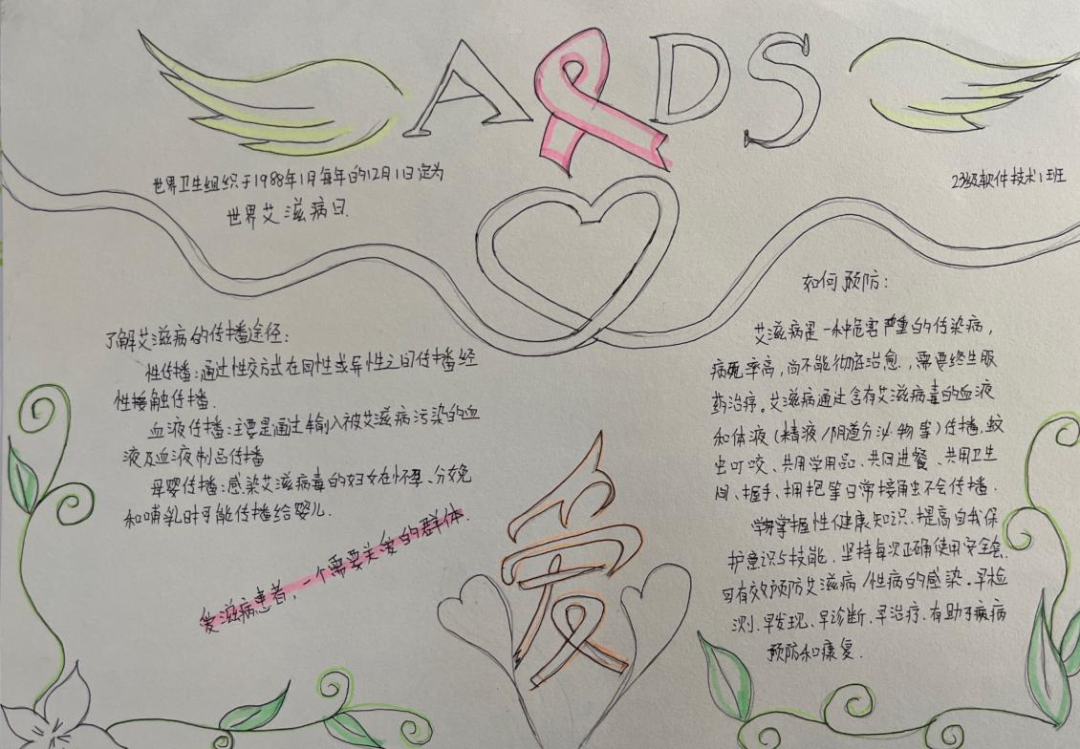 AIDS
世界卫生组织于1988年1月每年的12月1日定为
世界艾滋病日.
23级软件技术1班
了解艾滋病的传播途径:
性传播:通过性交方式在同性或异性之间传播经
性接触传播.
血液传播:主要是通过输入被艾滋病污染的血
液及血液制品传播
母婴传播:感染艾滋病毒的妇女在怀孕、分娩
和哺乳时可能传播给婴儿.
爱滋病患者,一个需要关爱的群体.
爱
如何预防:
艾滋病是一种危害严重的传染病,
病死率高,尚不能彻底治愈,需要终生服
药治疗。艾滋病通过含有艾滋病毒的血液
和体液(精液/阴道分泌物等)传播,蚊
虫叮咬、共用学用品、共同进餐、共用卫生
间、握手、拥抱等日常接触不会传播.
掌握性健康知识,提高自我保
护意识与技能,坚持每次正确使用安全套,
可有效预防艾滋病/性病的感染,早检
测、早发现、早诊断、早治疗,有助于疾病
预防和康复.